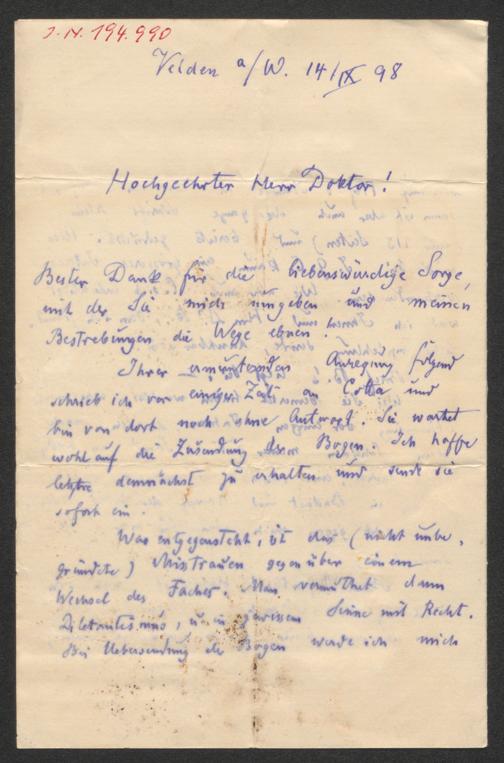 J.N. 194.990
Velden a/W. 14/IX 98
Hochgeehrter Herr Doktor!
Besten Dank für die liebenswürdige Sorge,
mit der Sie mich umgeben und meinen
Bestrebungen die Wege ebnen.
Ihrer ermunternden Anregung folgend
schrieb ich vor einiger Zeit an Cotta und
bin von dort noch ohne Antwort. Sie wartet
wohl auf die Zusendung der Bogen. Ich hoffe
letztre demnächst zu erhalten und sende sie
sofort ein.
Was entgegensteht, ist das (nicht unbe-
gründete) Mistrauen gegenüber einem
Wechsel des Faches. Man vermuthet dann
Diletantismus, u. in gewissem Sinne mit Recht.
Bei Uebersendung der Bogen werde ich mich